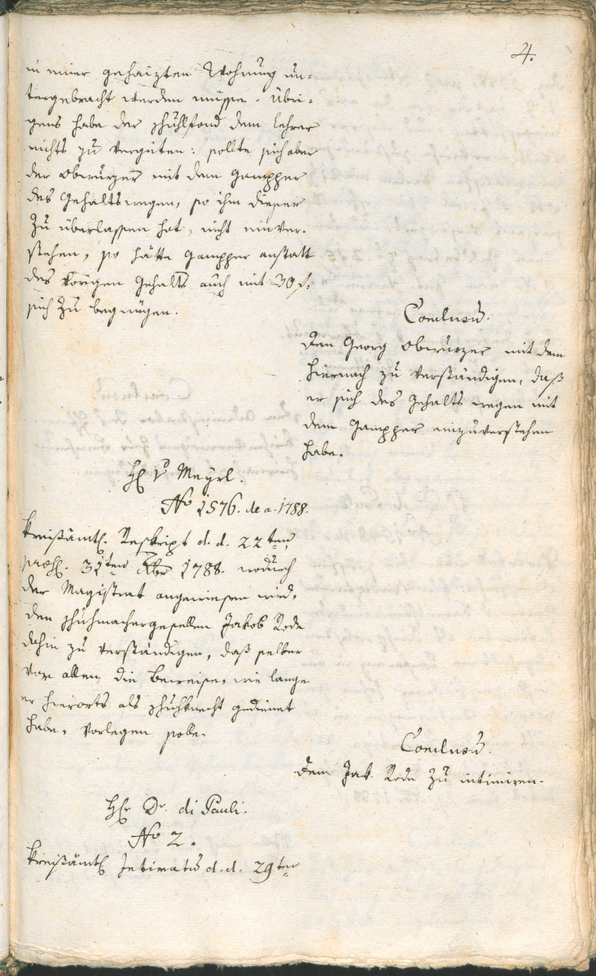 4.
in einer geheizten Wohnung un-
tergebracht werden müsse. Übri-
gens habe der Schuhlfond dem Lehrer
nichts zu vergüten: sollte sich aber
der Oberurzer mit dem Gampper
des Gehalts wegen, so ihm dieser
zu überlassen hat, nicht einver-
stehen, so hätte Gampper anstatt
des vorigen Gehalts auch mit 30 f.
sich zu begnügen.
Conclusum.
Den Georg Oberurzer mit dem
hiernach zu verständigen, daß
er sich des Gehalts wegen mit
dem Gampper einzuverstehen
habe.
H. v. Meyrl.
No 1576. de a. 1788.
Kreisämtl. Reskript d. d. 22ten
präs. 31ten Xbr 1788. wodurch
der Magistrat angewiesen wird,
den Schuhmachergesellen Jakob Rode
dahin zu verständigen, daß selber
vor allen die Beweise, wie lange
er hierorts als Schuhknecht gedienet
habe, vorlegen solle.
Conclusum.
Dem Jak. Rode zu intimiren.
H. Dr. di Pauli.
No 2.
Kreisämtl. Intimatum d. d. 29ten